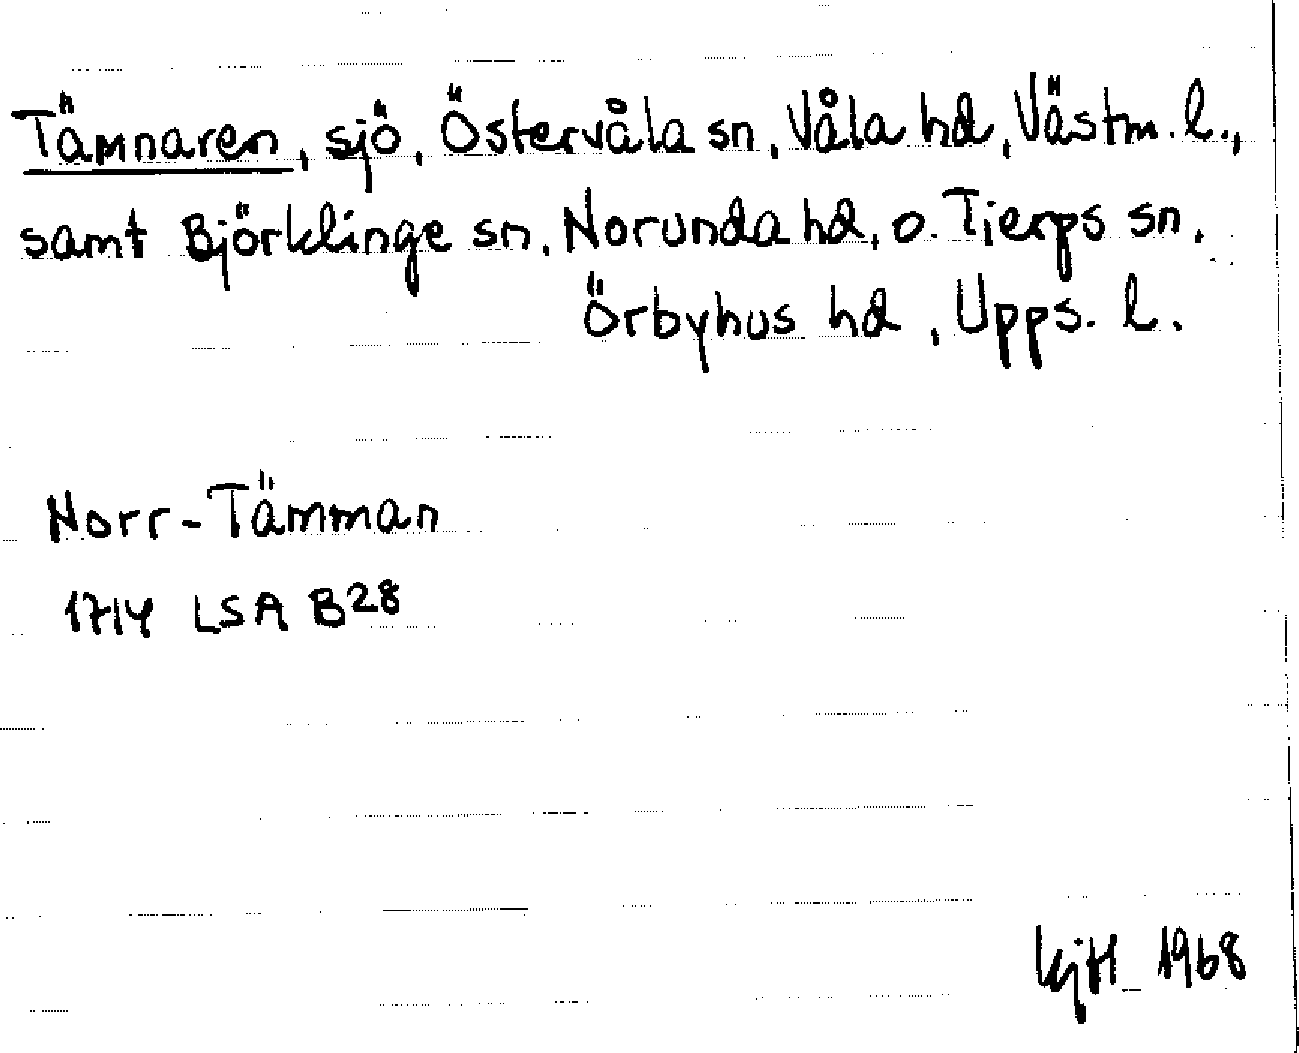 Tämnaren, sjö, Östervåla sn, Våla hd, Västm. l.,
samt Björklinge sn, Norunda hd, o. Tierps sn,
Örbyhus hd, Upps. l.
Norr-Tämman
1714 LSA B28
KjH 1968